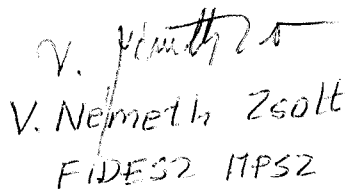 V. Németh Zsolt
V. Németh Zsolt
FIDESZ MPSZ